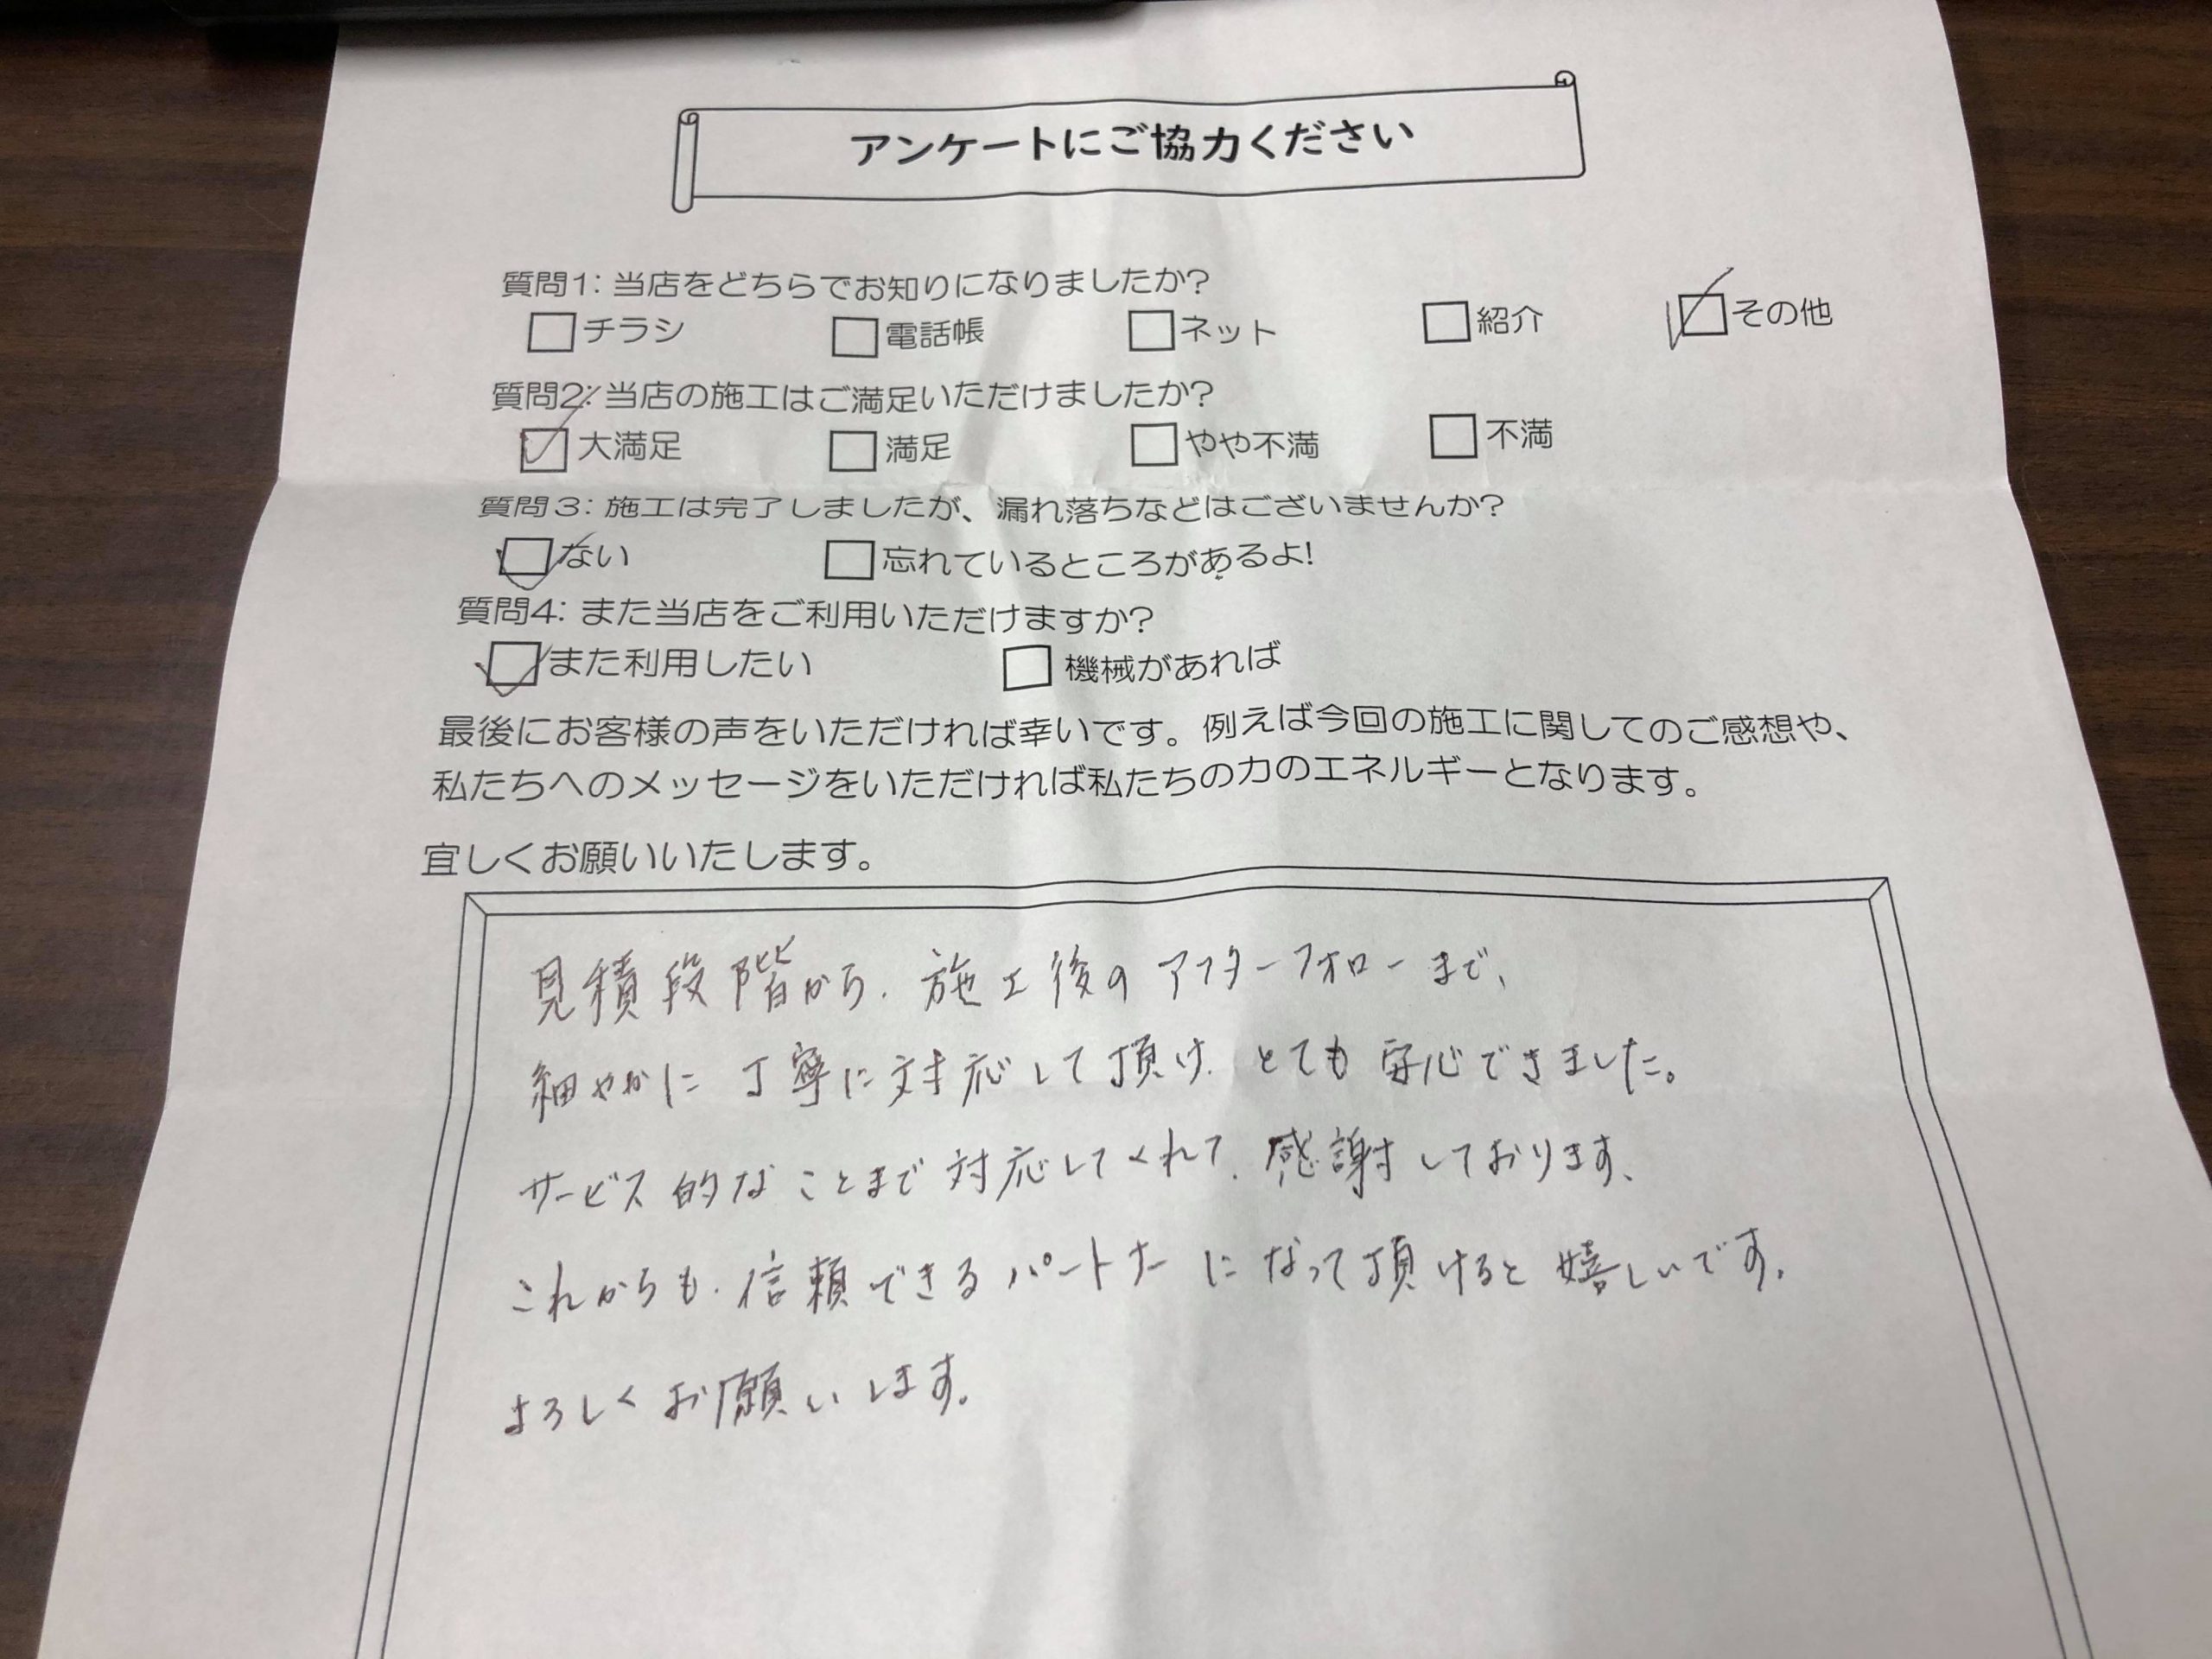 アンケートにご協力ください
質問1: 当店をどちらでお知りになりましたか?
チラシ 電話帳 ネット 紹介 その他
質問2: 当店の施工はご満足いただけましたか?
大満足 満足 やや不満 不満
質問3: 施工は完了しましたが、漏れ落ちなどはございませんか?
ない 忘れているところがあるよ!
質問4: また当店をご利用いただけますか?
また利用したい 機械があれば
最後にお客様の声をいただければ幸いです。例えば今回の施工に関してのご感想や、
私たちへのメッセージをいただければ私たちの力のエネルギーとなります。
宜しくお願いいたします。
見積段階から、施工後のアフターフォローまで、
細やかに丁寧に対応して頂け、とても安心できました。
サービス的なことまで対応してくれて、感謝しております、
これからも、信頼できるパートナーになって頂けると嬉しいです。
よろしくお願いします。